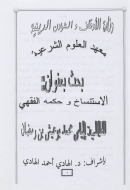 وزارة الأوقاف و الشؤون الدينية
معهد العلوم الشرعية
بحث بعنوان:
الاستنساخ و حكمه الفقهي
بإشراف: د. الهادي أحمد الهادي